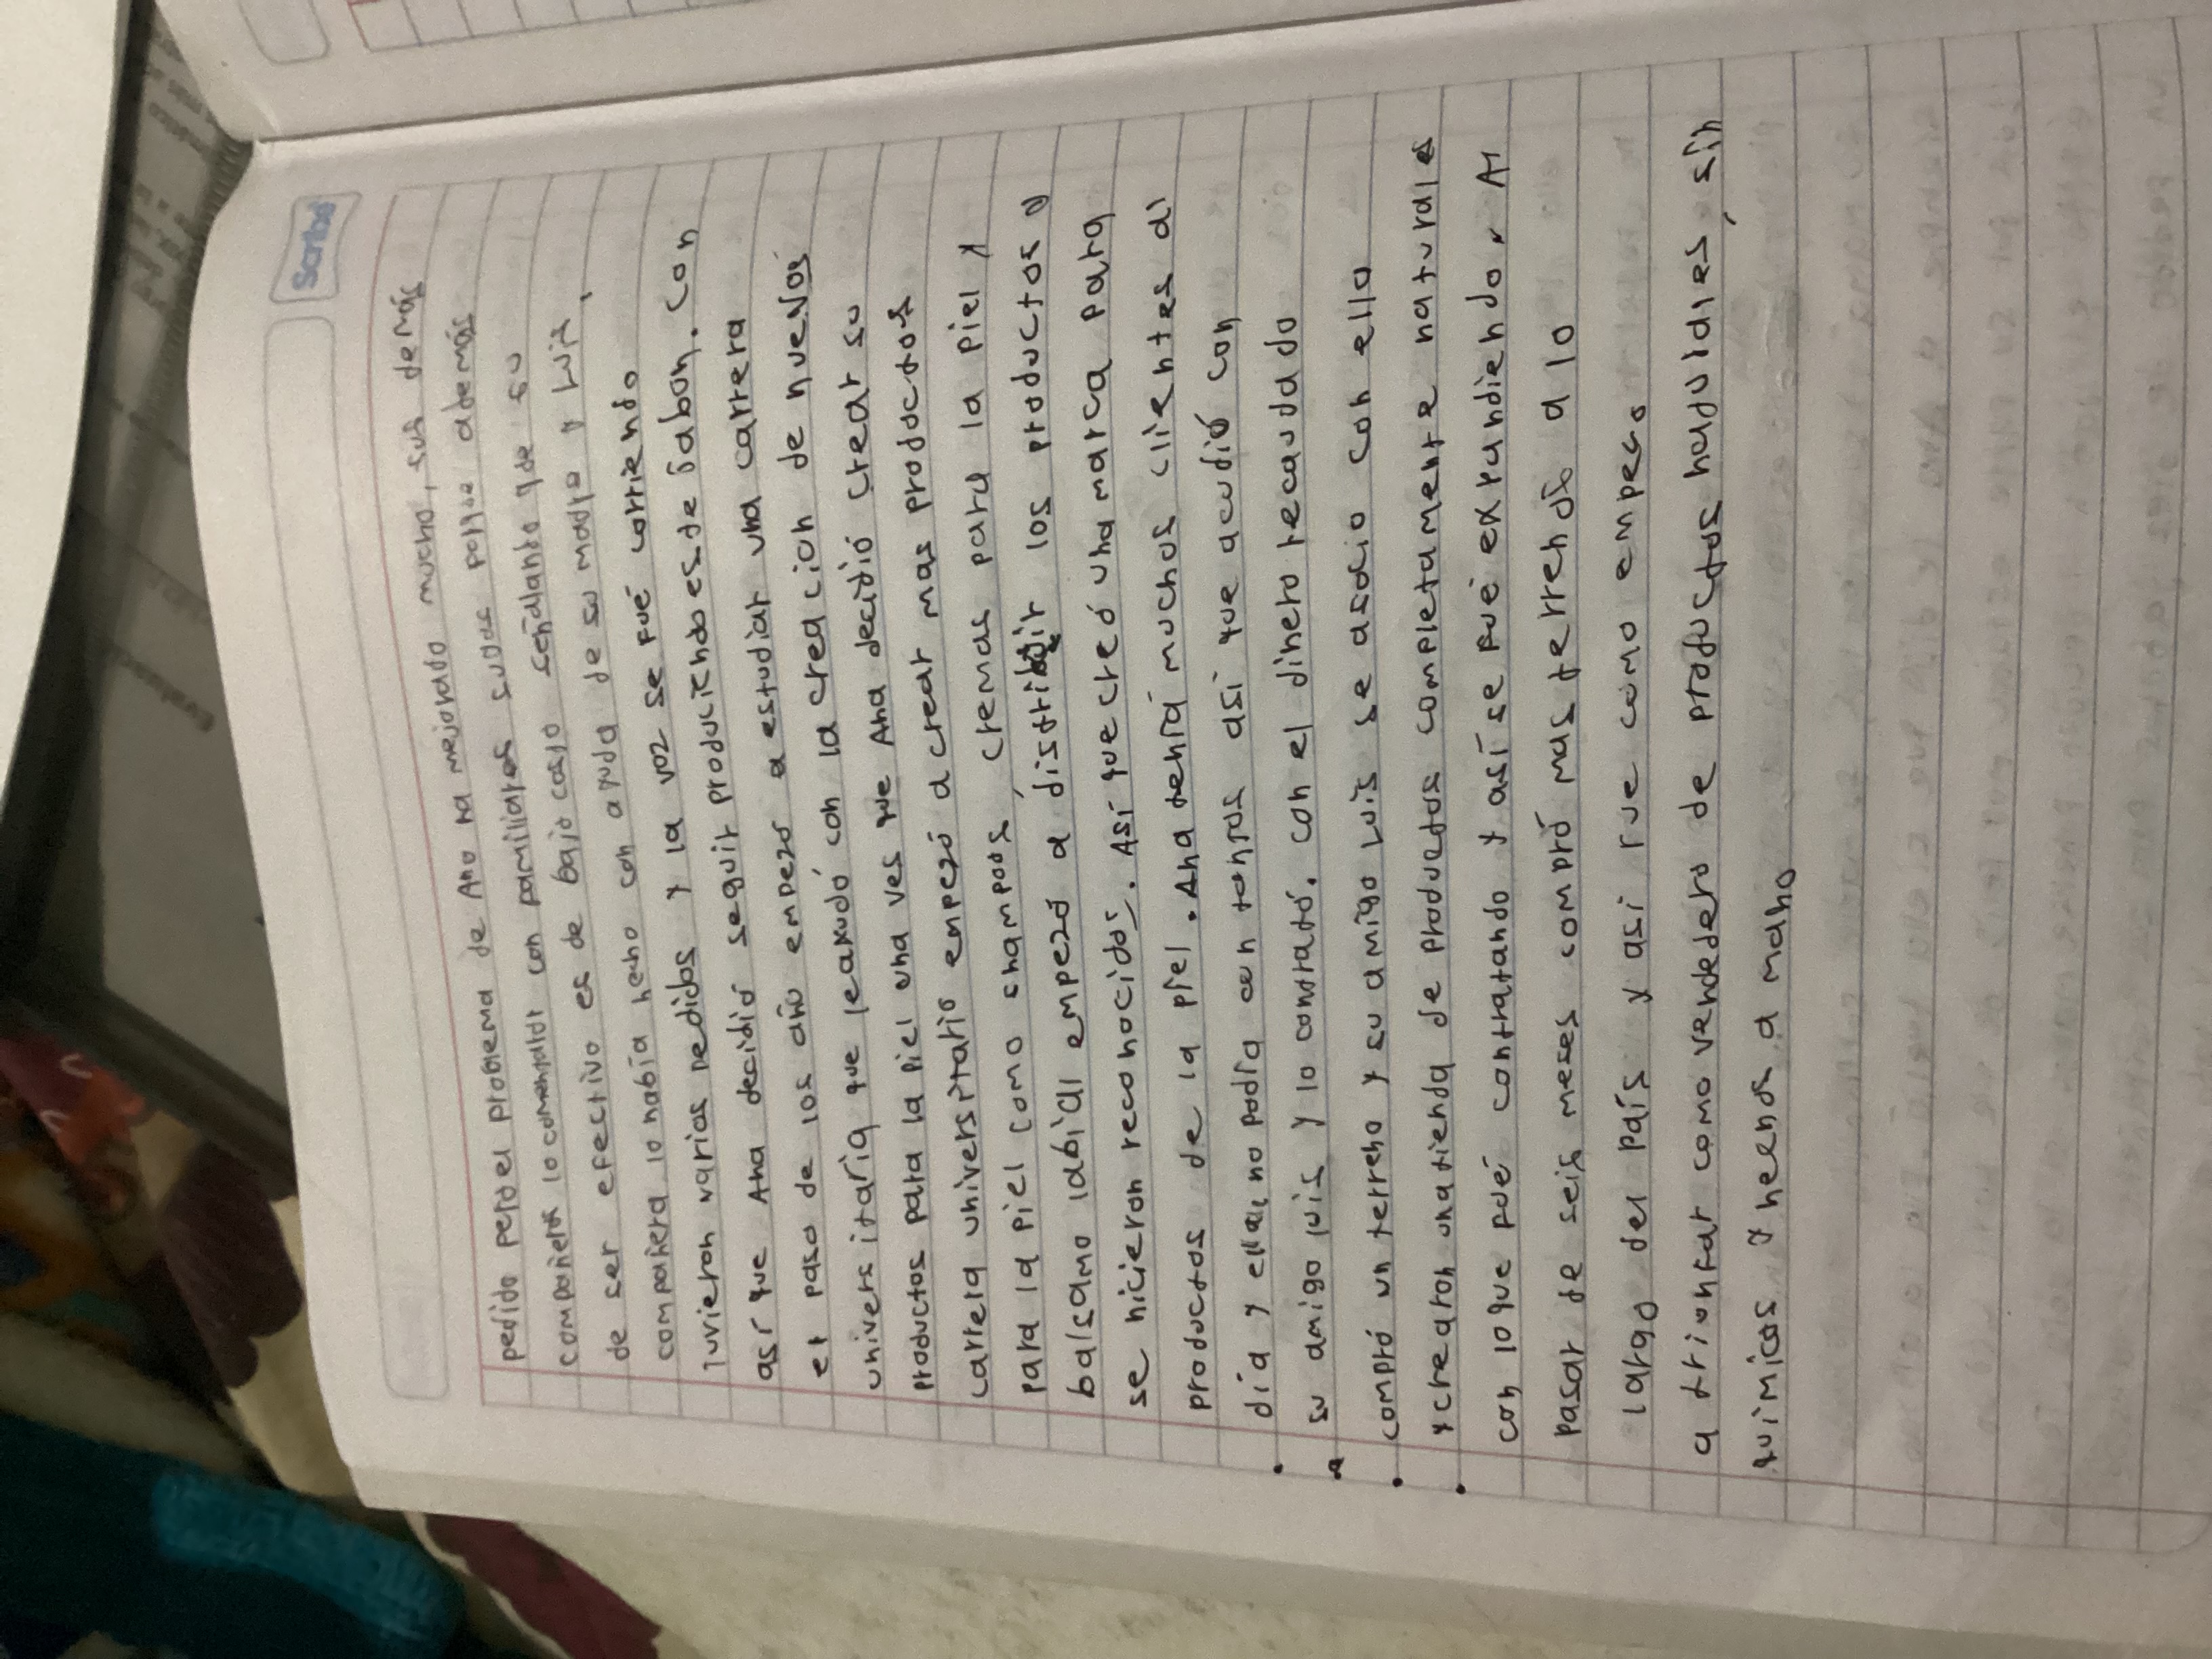 Scribe
pedido pero el problema de Ana ha mejorado mucho, sus demás
compañeros lo comentaron con familiares suyos porque además
de ser efectivo es de bajo costo señalando que su
compañera lo había hecho con ayuda de su madre y Luis,
tuvieron varias pedidos y la voz se fué corriendo
así que Ana decidió seguir produciendo este Jabon. Con
el paso de los año empezó a estudiar una carrera
universitaria que leayudó con la creacion de nuevos
productos para la piel una ves que Ana decidió crear su
carrera universitario empezó a crear mas productos
para la piel como shampoos, cremas para la piel y
balsamo labial empezó a distribuir los productos
se hicieron reconocidos. Así que creó una marca para
productos de la piel. Ana tenía muchos clientes al
día y ella no podía con tantos así que acudió con
su amigo luis y lo contrató. con el dinero recaudado
compró un terreno y su amigo Luis se asocio con ello
y crearon una tienda de productos completamente naturales
con lo que fué contratando y así se fué expandiendo. Al
pasar de seis meses compró mas terrenos a lo
largo del país y asi fue como empezo
a triunfar como vendedero de productos naturales, sin
quimicos y hechos a mano